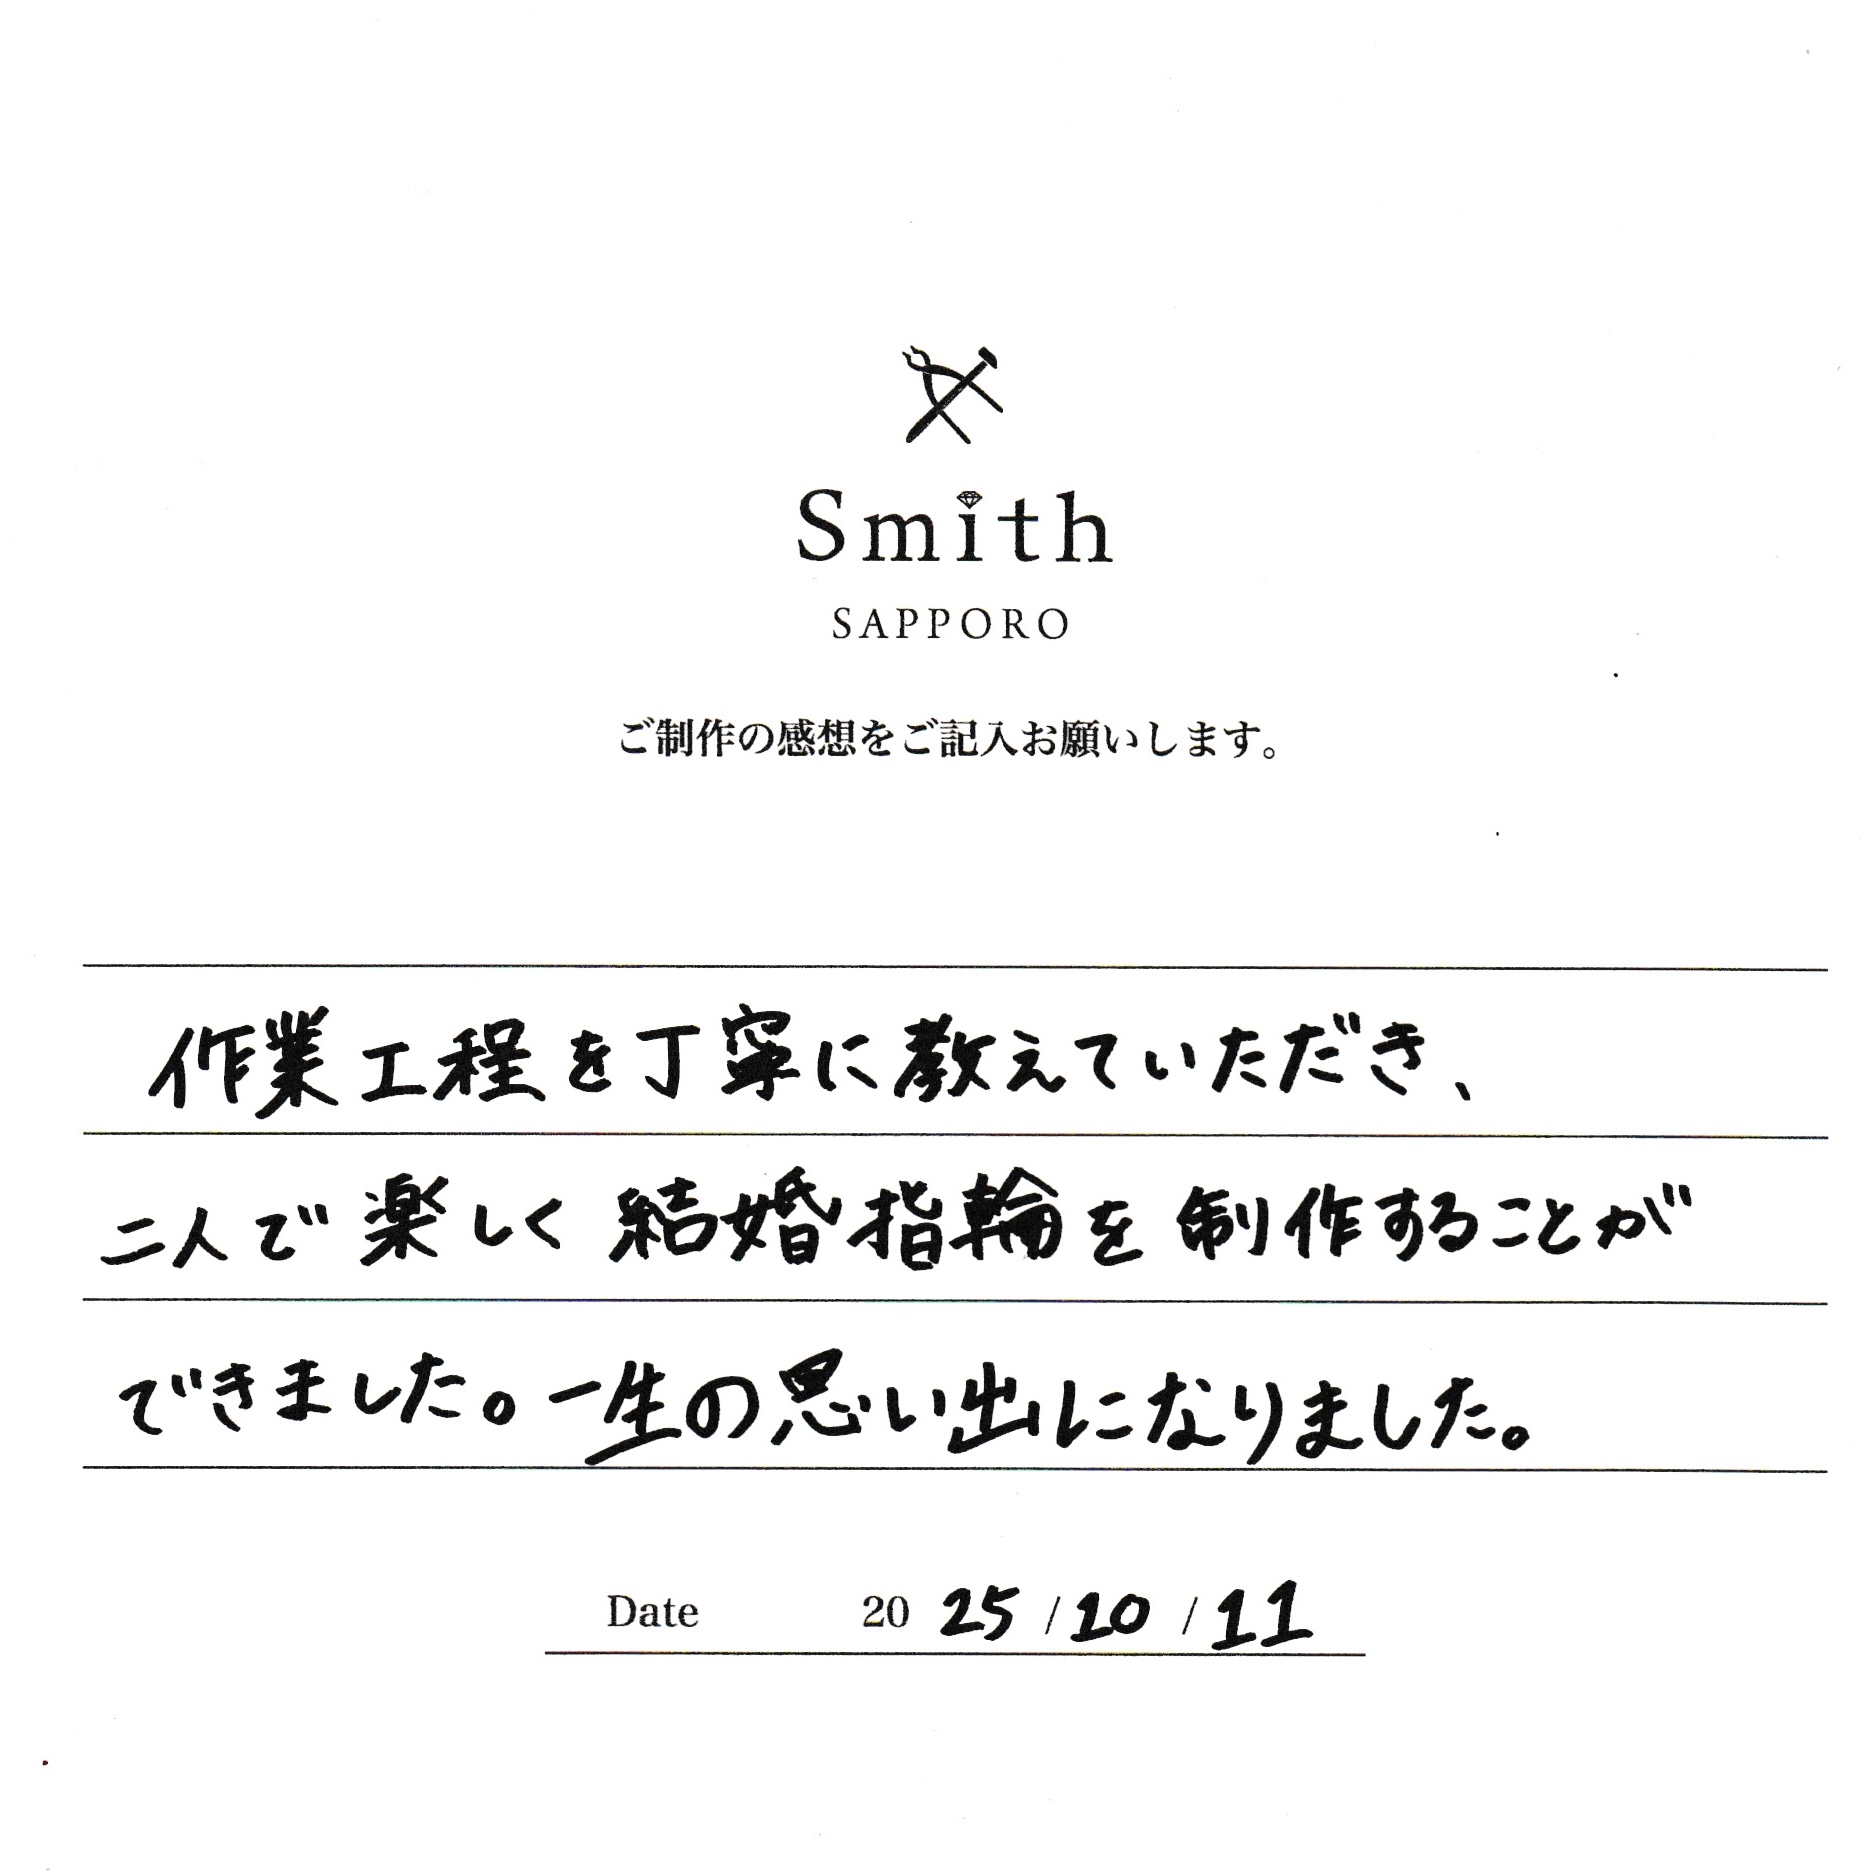 Smith
SAPPORO
ご制作の感想をご記入お願いします。
作業工程を丁寧に教えていただき、
二人で楽しく結婚指輪を制作することが
できました。一生の思い出になりました。
Date 2025/10/11